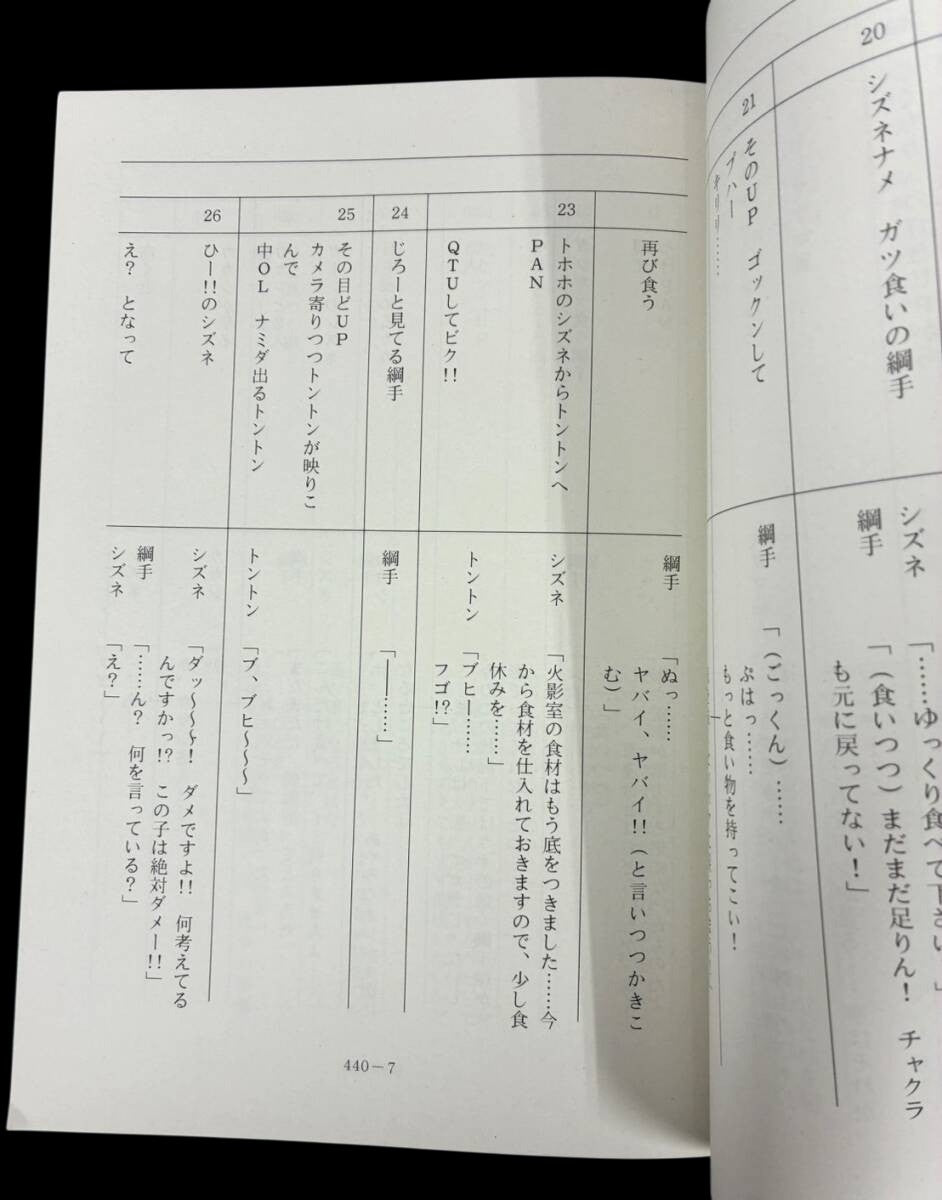 20
シズネナメ　ガツ食いの綱手
シズネ　「……ゆっくり食べて下さい」
綱手　「(食いつつ)まだまだ足りん！　チャクラ
も元に戻ってない！」
21
そのUP　ゴックンして
プハー
綱手　「(ごっくん)……
ぷはっ……
もっと食い物を持ってこい！
再び食う
綱手　「ぬっ……
ヤバイ、ヤバイ!!(と言いつつかきこ
む)」
23
トホホのシズネからトントンへ
PAN
シズネ　「火影室の食材はもう底をつきました……今
から食材を仕入れておきますので、少し食
休みを……」
QTUしてビク!!
トントン　「ブヒー……
フゴ!?
24
じろーと見てる綱手
綱手　「――……」
25
その目どUP
カメラ寄りつつトントンが映りこ
んで
中OL　ナミダ出るトントン
トントン　「ブ、ブヒ〜〜〜」
26
ひー!!のシズネ
シズネ　「ダッ〜〜〜〜！　ダメですよ!!　何考えてる
んですかっ!?　この子は絶対ダメー!!」
え？　となって
綱手　「……ん？　何を言っている？」
シズネ　「え？」
440－7